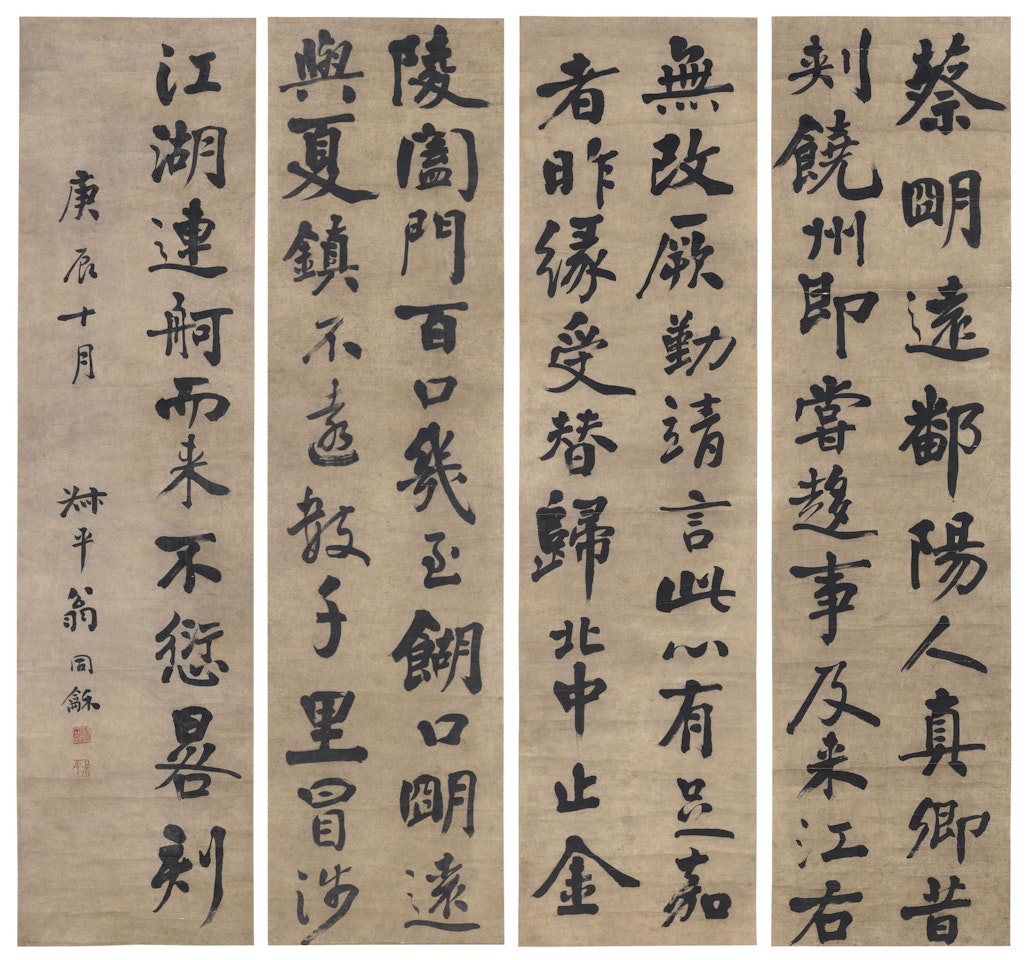 蔡朙遠鄱陽人真卿昔
刾饒州即嘗趍事及来江右
無改厥勤靖言此心有足嘉
者昨緣受替歸北中止金
陵闔門百口幾至餬口朙遠
與夏鎮不遠數千里冒涉
江湖連舸而来不愆晷刻
庚辰十月 叔平翁同龢